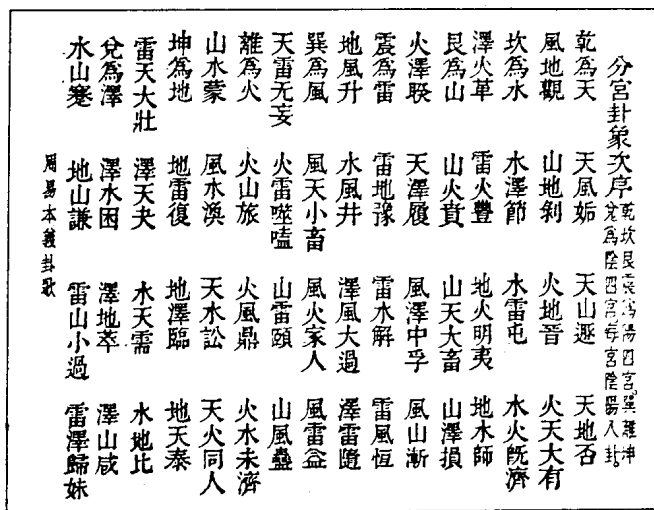 分宮卦象次序 乾坎艮震爲陽四宮巽離坤
兌爲陰四宮每宮陰陽八卦
乾爲天 天風姤 天山遯 天地否
風地觀 山地剝 火地晉 火天大有
坎爲水 水澤節 水雷屯 水火旣濟
澤火革 雷火豐 地火明夷 地水師
艮爲山 山火賁 山天大畜 山澤損
火澤睽 天澤履 風澤中孚 風山漸
震爲雷 雷地豫 雷水解 雷風恆
地風升 水風井 澤風大過 澤雷隨
巽爲風 風天小畜 風火家人 風雷益
天雷无妄 火雷噬嗑 山雷頤 山風蠱
離爲火 火山旅 火風鼎 火水未濟
山水蒙 風水渙 天水訟 天火同人
坤爲地 地雷復 地澤臨 地天泰
雷天大壯 澤天夬 水天需 水地比
兌爲澤 澤水困 澤地萃 澤山咸
水山蹇 地山謙 雷山小過 雷澤歸妹
周易本義卦歌